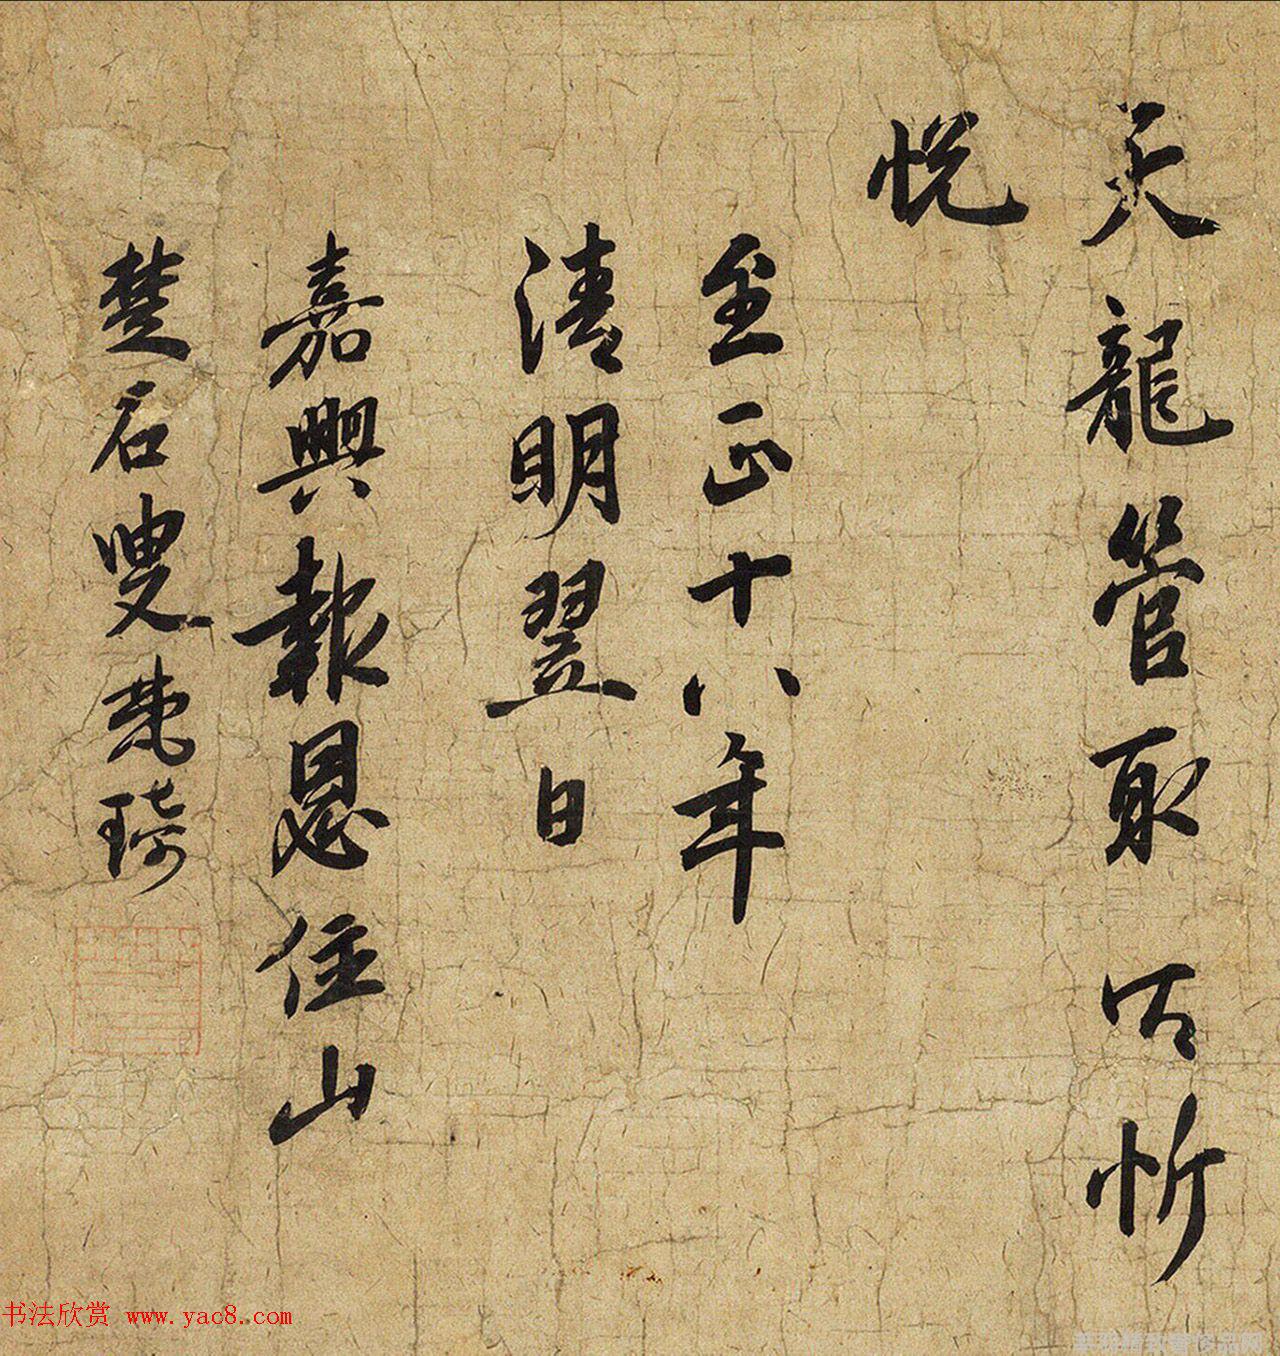 天龍管取亦忻
悅
至正十八年
清明翌日
嘉興報恩住山
楚石叟梵琦
书法欣赏 www.yac8.com